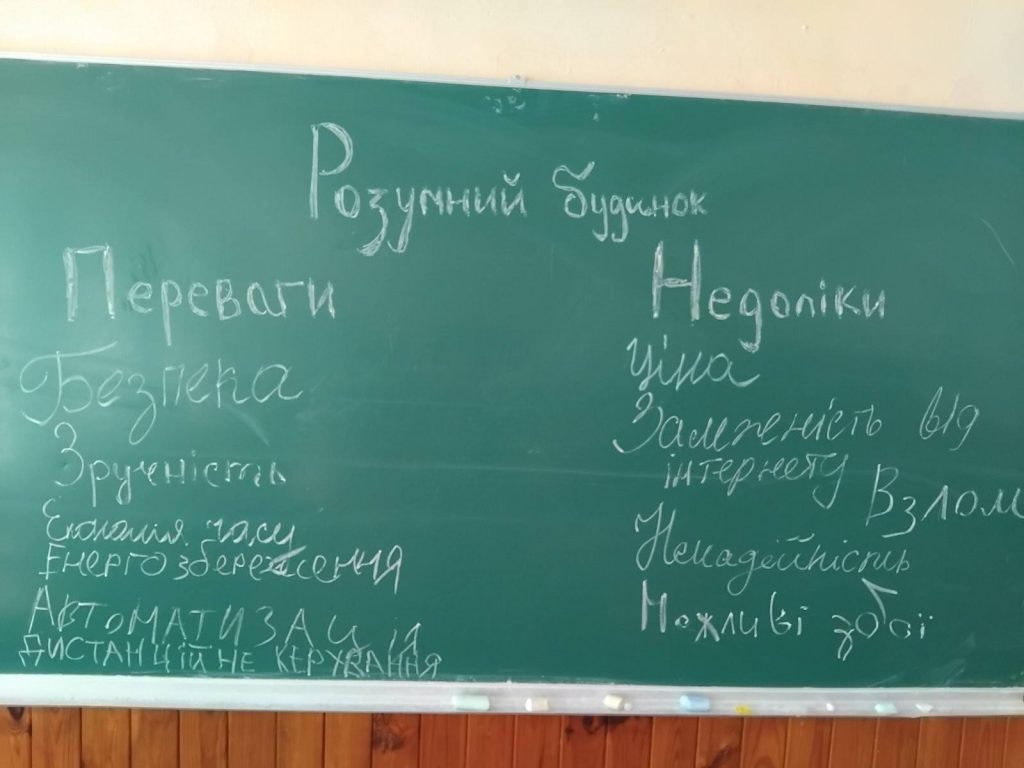 Розумний будинок
Переваги
Безпека
Зручність
Економія часу
Енергозбереження
Автоматизація
Дистанційне керування
Недоліки
Ціна
Залеженість від
інтернету
Взлом
Ненадейність
Можливі збої